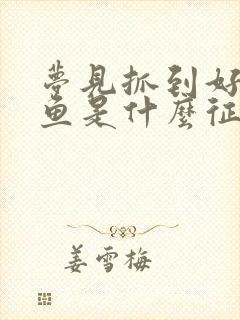 夢見抓到好
鱼是什麼征
姜雪梅